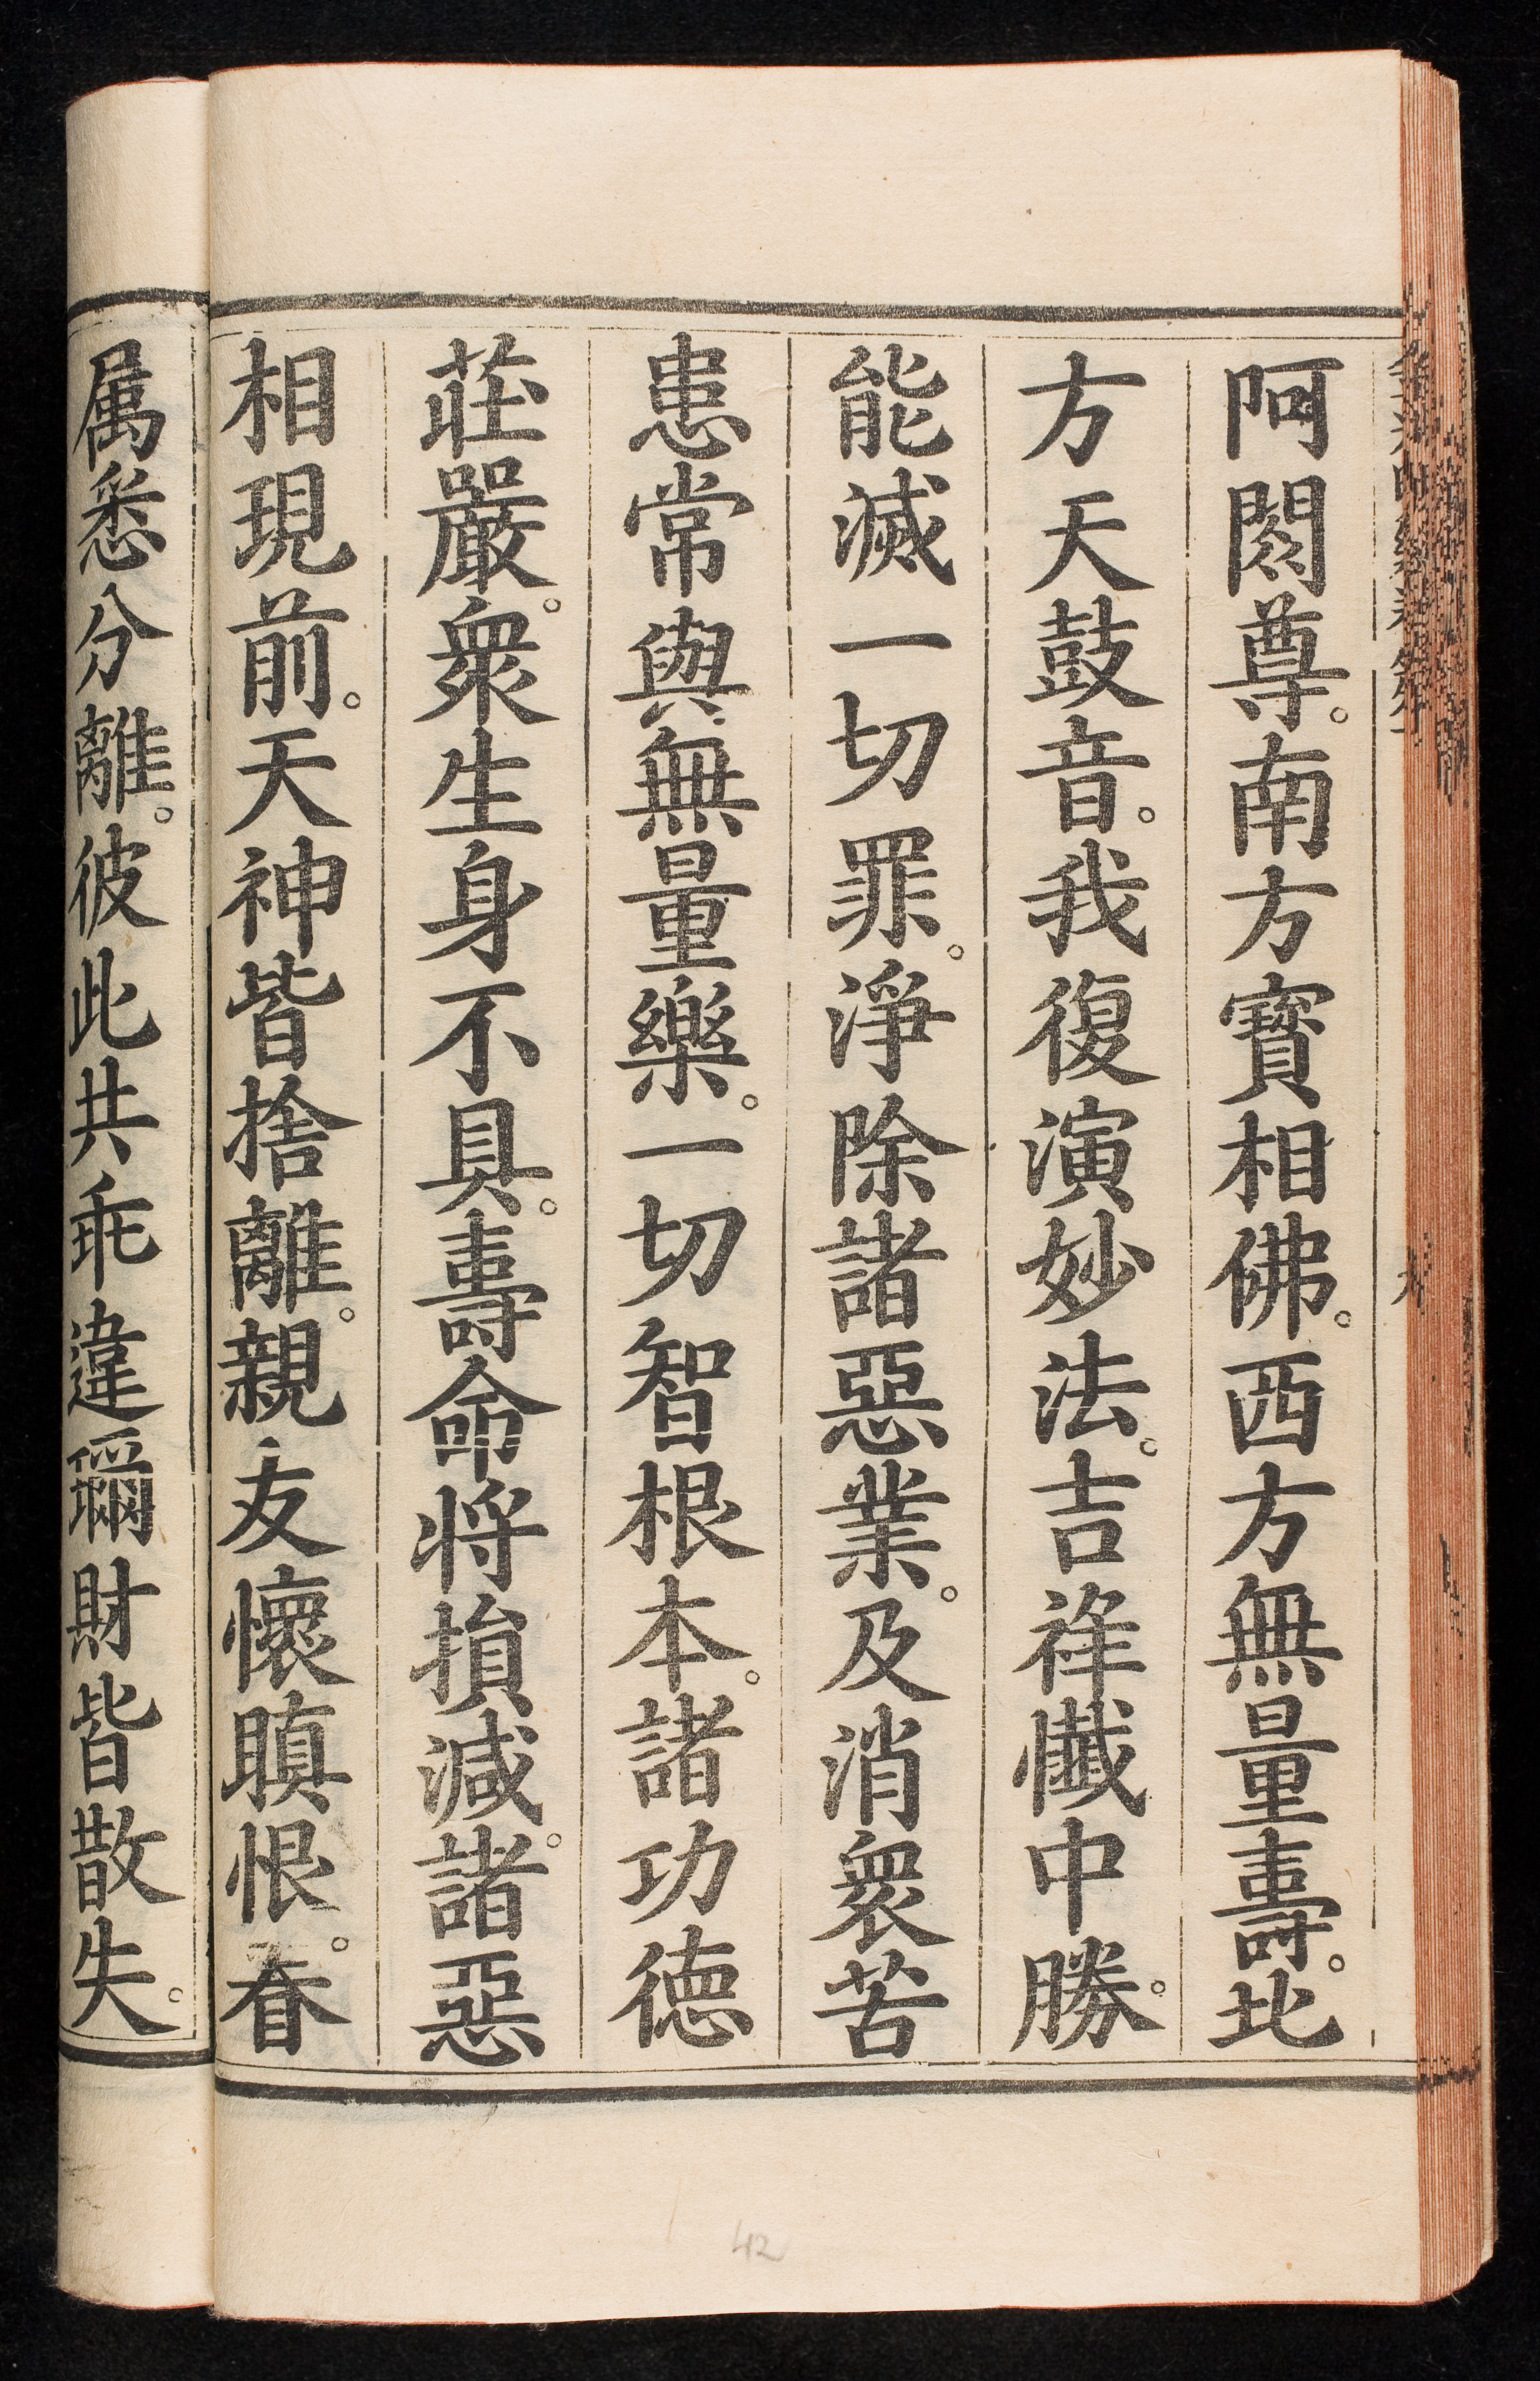 阿閦尊。南方寶相佛。西方無量壽。北
方天鼓音。我復演妙法。吉祥懺中勝。
能滅一切罪。淨除諸惡業。及消衆苦
患常與無量樂。一切智根本。諸功德
莊嚴。衆生身不具。壽命将損減。諸惡
相現前。天神皆捨離。親友懷瞋恨。眷
属悉分離。彼此共乖違珎財皆散失。
42